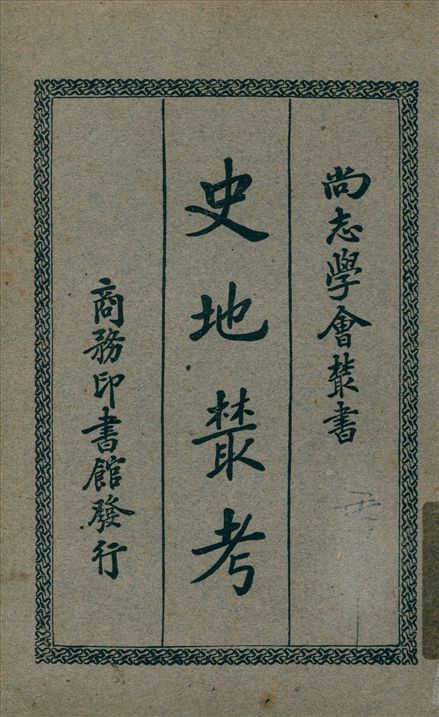 尚志學會叢書
史地叢考
商務印書館發行